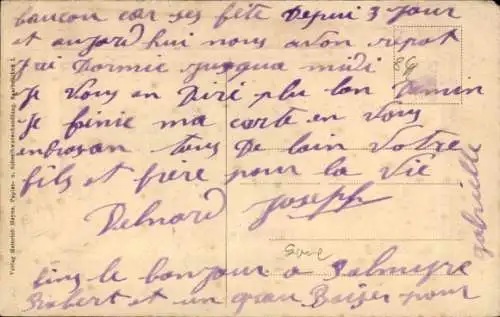 baucou car ses fête Depui 3 jour
et aujord hui nous avon repot
J'ai Dormie jusqua midi
Je vous en Diré plu lon Demin
Je finie ma carte en vous
enbrasan tous De loin votre
fils et frère pour la vie
Delnard Joseph
le bonjour a Palmyre
Robert et un gran Baiser pour
gabrielle
Verlag Heinrich